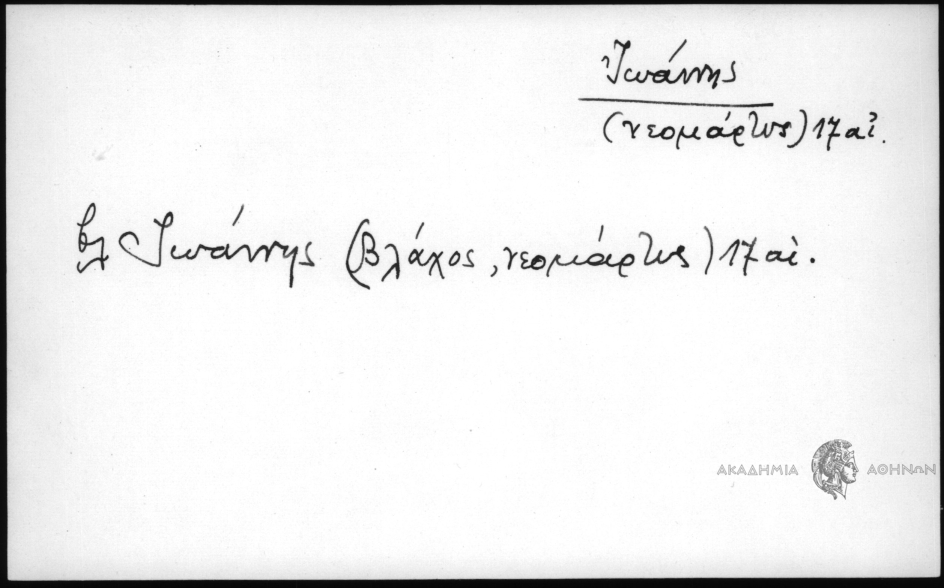 Ἰωάννης
(νεομάρτυς) 17 αἰ.
βλ Ἰωάννης (Βλάχος, νεομάρτυς) 17 αἰ.
ΑΚΑΔΗΜΙΑ ΑΘΗΝΩΝ